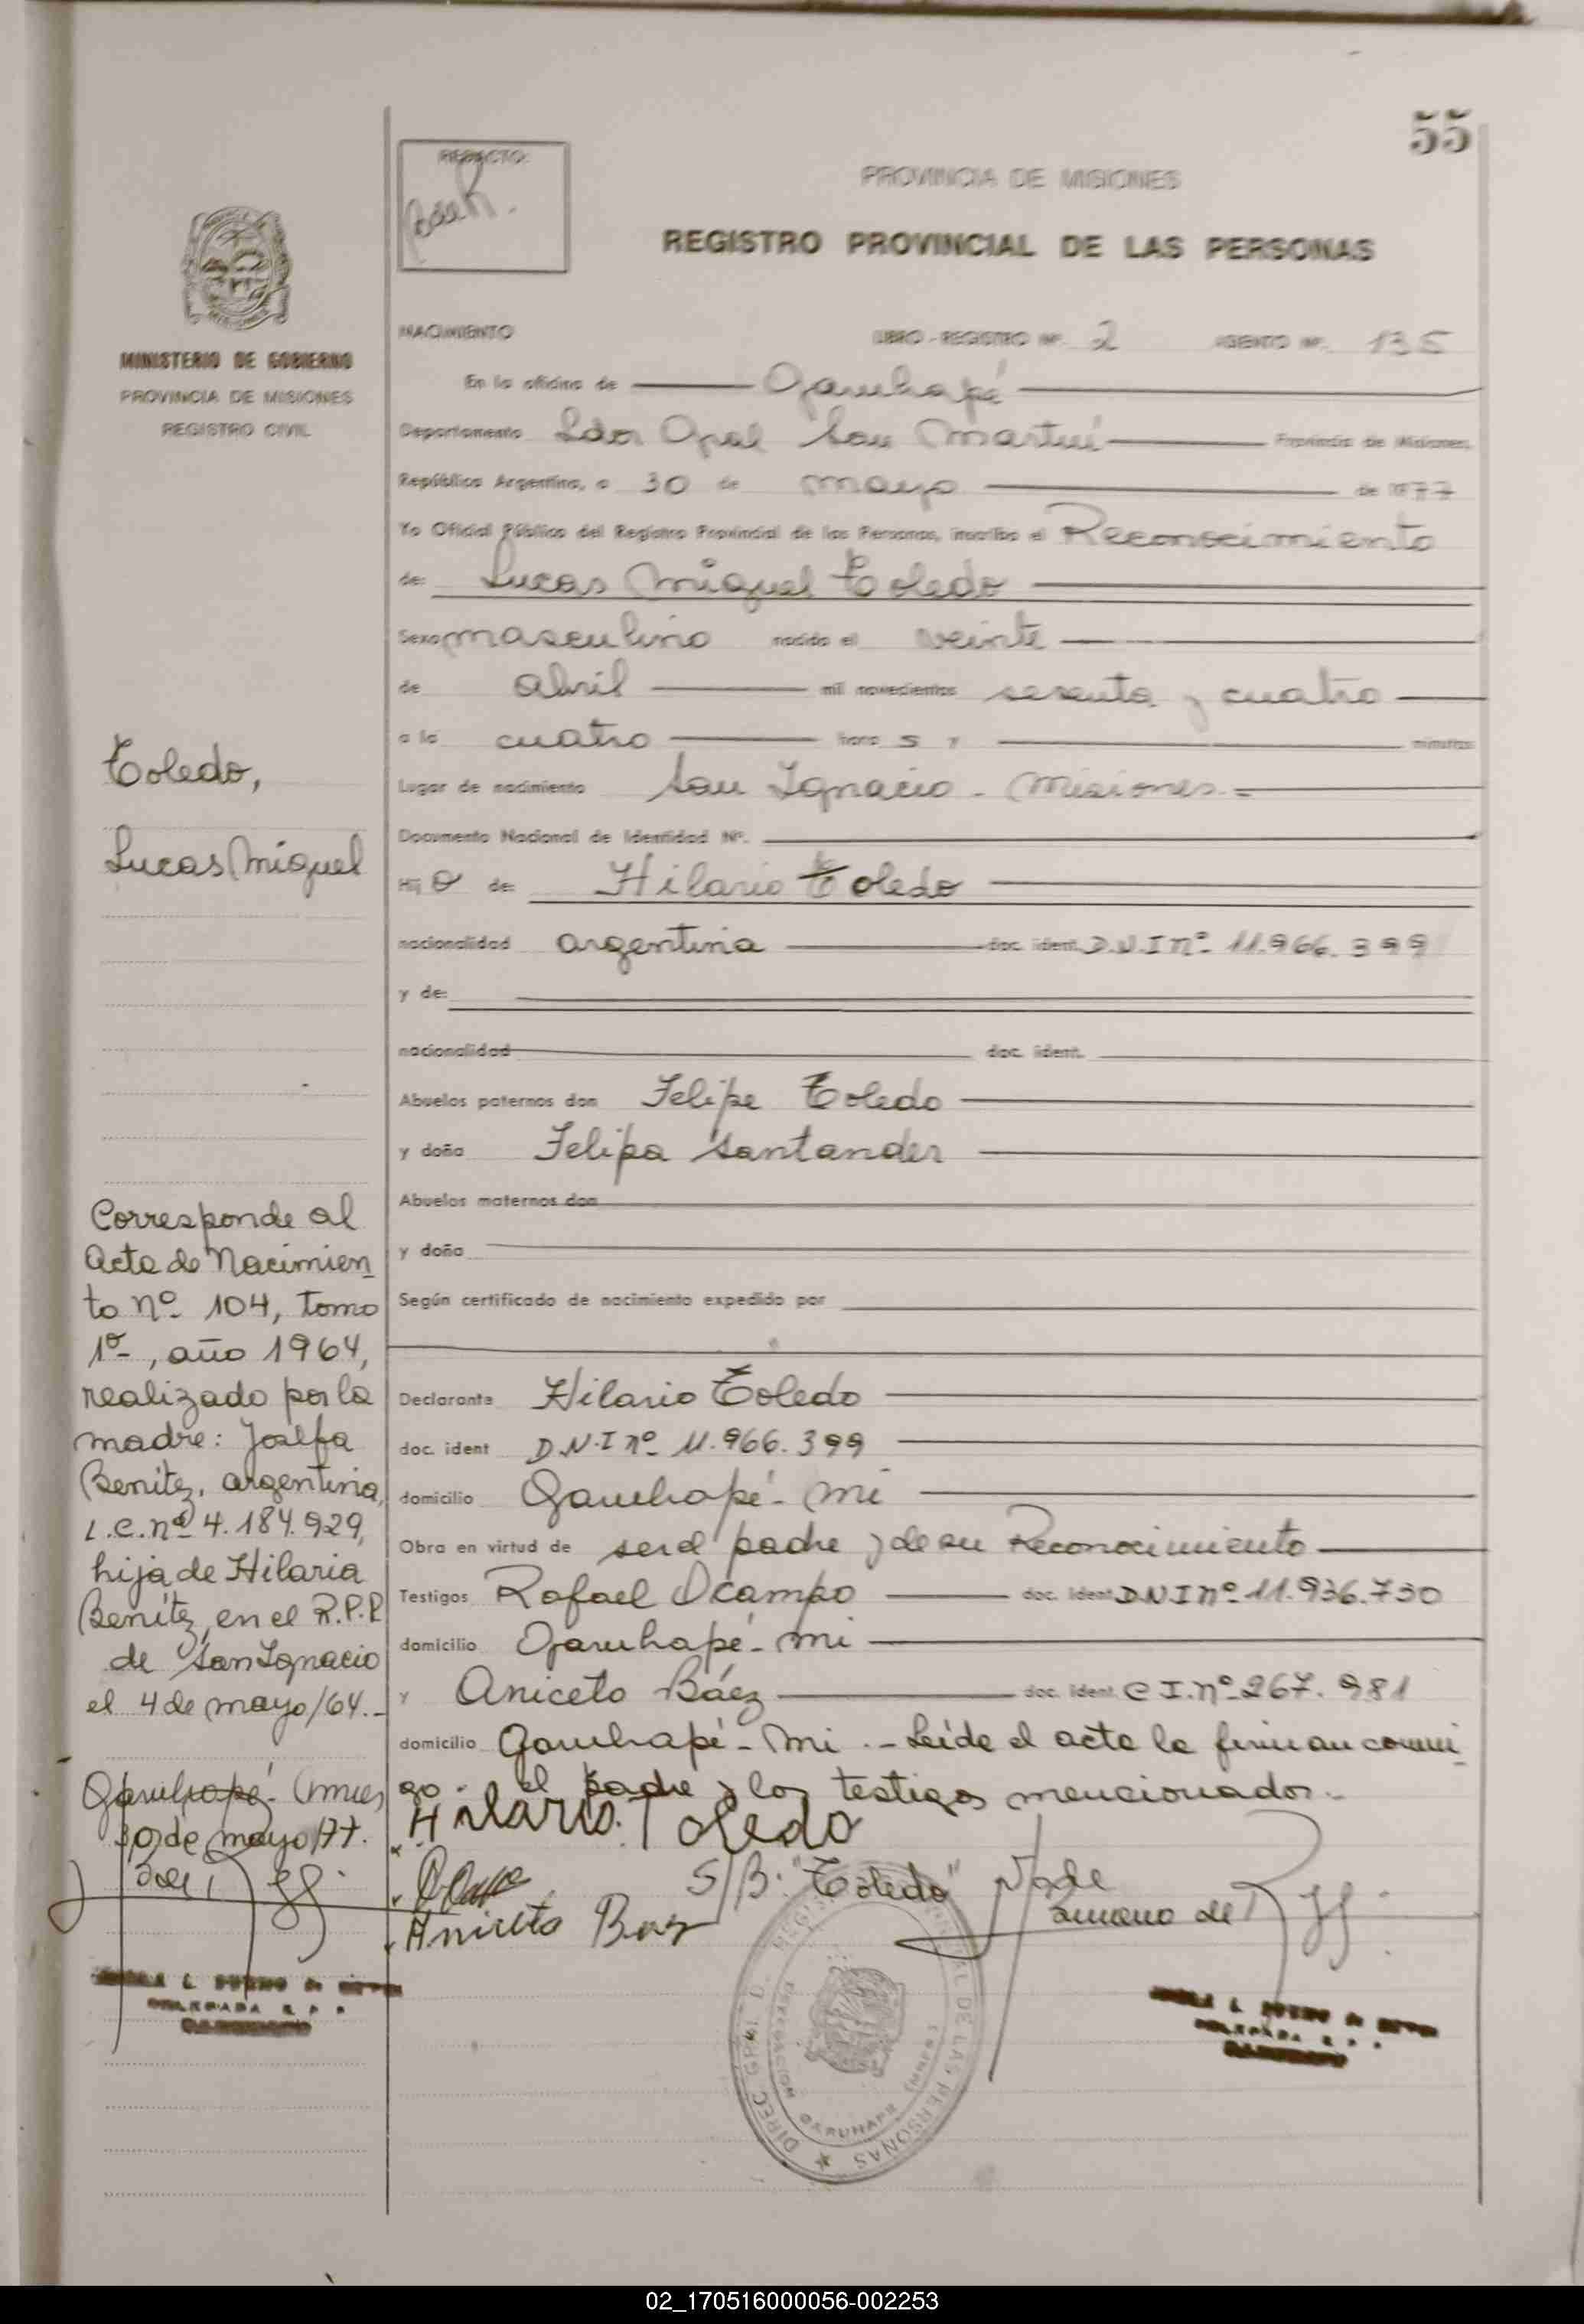 55
REDACTO:
PROVINCIA DE MISIONES
REGISTRO PROVINCIAL DE LAS PERSONAS
MINISTERIO DE GOBIERNO
PROVINCIA DE MISIONES
REGISTRO CIVIL
NACIMIENTO LIBRO - REGISTRO Nº. 2 ASIENTO Nº. 135
En la oficina de Garuhapé
Departamento Ldor Gral San Martín Provincia de Misiones,
República Argentina, a 30 de mayo de 1977
Yo Oficial Público del Registro Provincial de las Personas, inscribo el Reconocimiento
de: Lucas Miguel Toledo
Sexo masculino nacido el veinte
de abril mil novecientos sesenta y cuatro
a la cuatro hora s y minutos
Lugar de nacimiento San Ignacio - Misiones.-
Documento Nacional de Identidad Nº.
Hij o de: Hilario Toledo
nacionalidad argentina doc. ident. D.N.I nº 11.966.399
y de:
nacionalidad doc. ident.
Abuelos paternos don Felipe Toledo
y doña Felipa Santander
Abuelos maternos don
y doña
Según certificado de nacimiento expedido por
Declarante Hilario Toledo
doc. ident D.N.I nº 11.966.399
domicilio Garuhapé - Mi
Obra en virtud de ser el padre y de su Reconocimiento
Testigos Rafael Ocampo doc. ident. D.N.I nº 11.936.730
domicilio Garuhapé - Mi
y Aniceto Báez doc. ident. C I. nº 267.981
domicilio Garuhapé - Mi .- Leída el acta la firman conmi
go - el padre y los testigos mencionados.-
Hilario Toledo
S/B: "Toledo" Vale
Aniceto Baez
Toledo,
Lucas Miguel
Corresponde al
Acta de Nacimien
to nº 104, tomo
1º, año 1964,
realizado por la
madre: Josefa
Benítez, argentina,
L.C. nº 4.184.929,
hija de Hilaria
Benítez, en el R.P.P
de San Ignacio
el 4 de mayo/64.-
Garuhapé - Mnes
30 de mayo/77.
DIREC. GRAL. D. REGISTRO PROVINCIAL DE LAS PERSONAS
GARUHAPE (MNES)
02_170516000056-002253